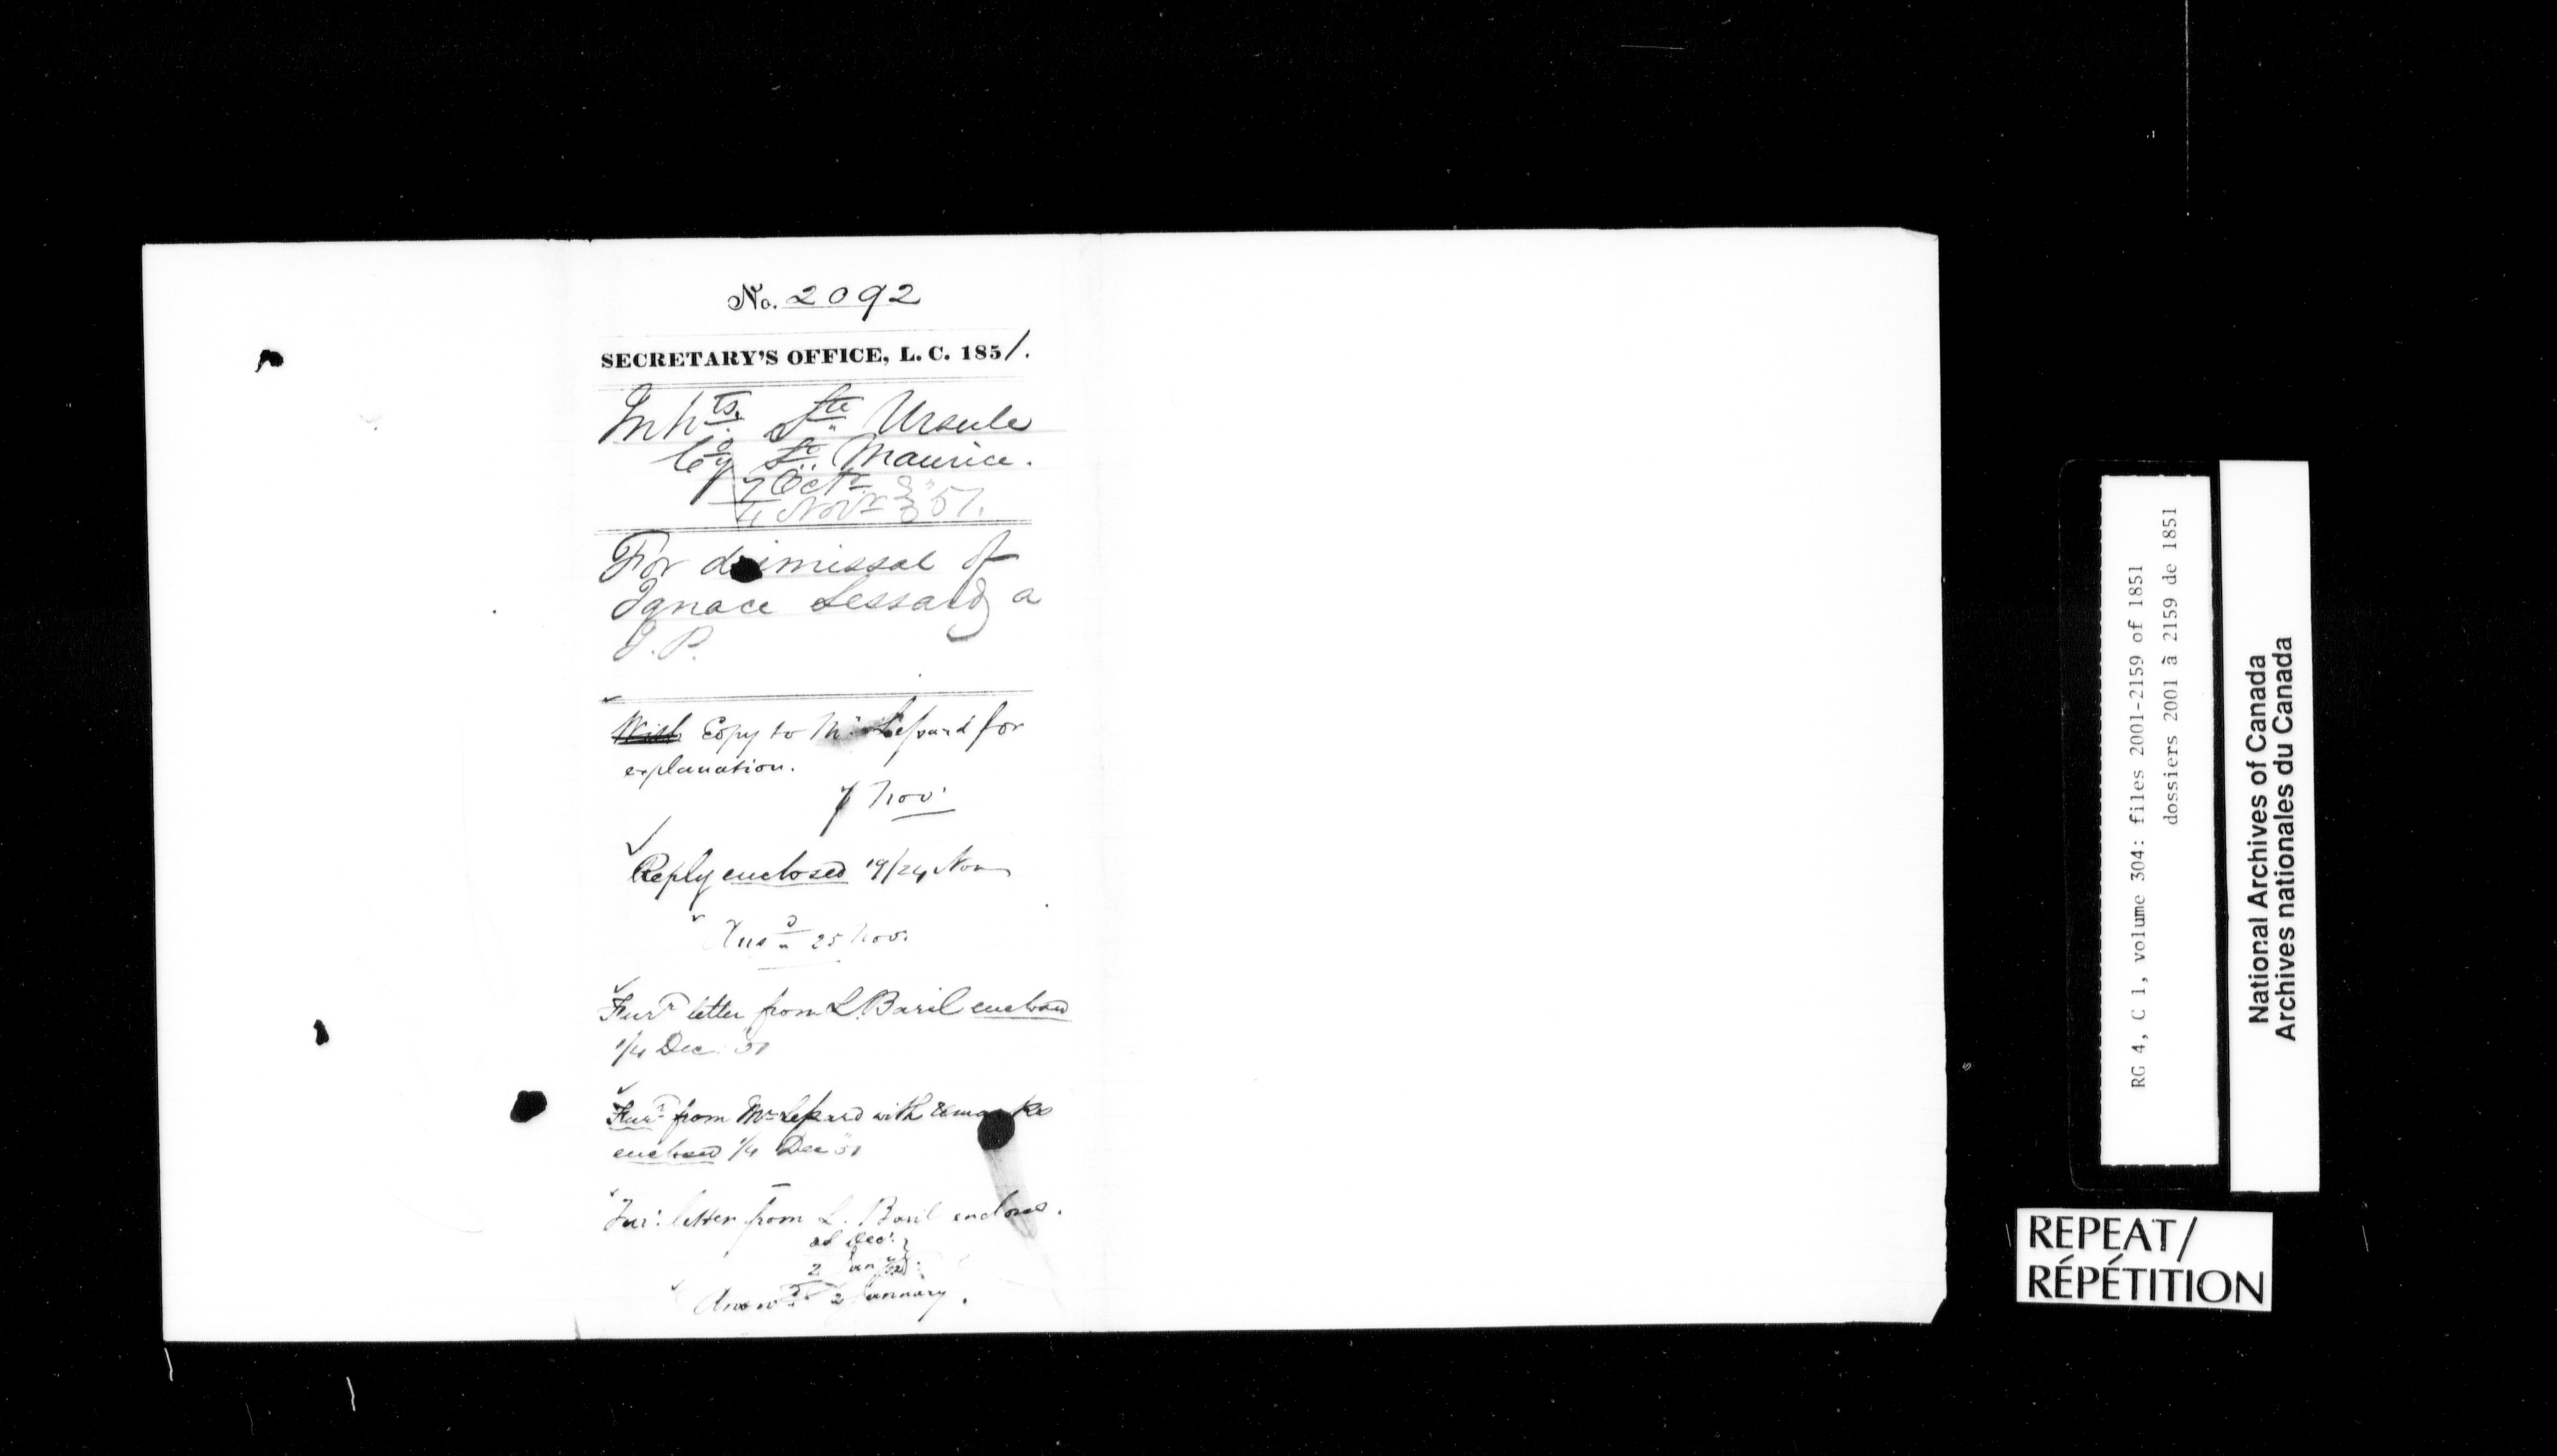 No. 2092
SECRETARY'S OFFICE, L. C. 1851.
Inhts. Ste Ursule
Coy St. Maurice.
7 Octr
4 Novr } 51.
For dsimissal of
Ignace Lessard a
J. P.
With Copy to Mr Lessard for
explanation.
7 Nov.
Reply enclosed 19/24 Nov
Ansd 25 Nov.
Furr letter from L. Baril enclosed
1/4 Dec. 51
Furr from Mr Lessard with Remarks
enclosed 1/4 Dec 51
Fur: letter from L. Baril enclosed.
Dec:
2 Jan 52
Answd 2 January.
RG 4, C 1, volume 304: files 2001-2159 of 1851
dossiers 2001 à 2159 de 1851
National Archives of Canada
Archives nationales du Canada
REPEAT/
RÉPÉTITION